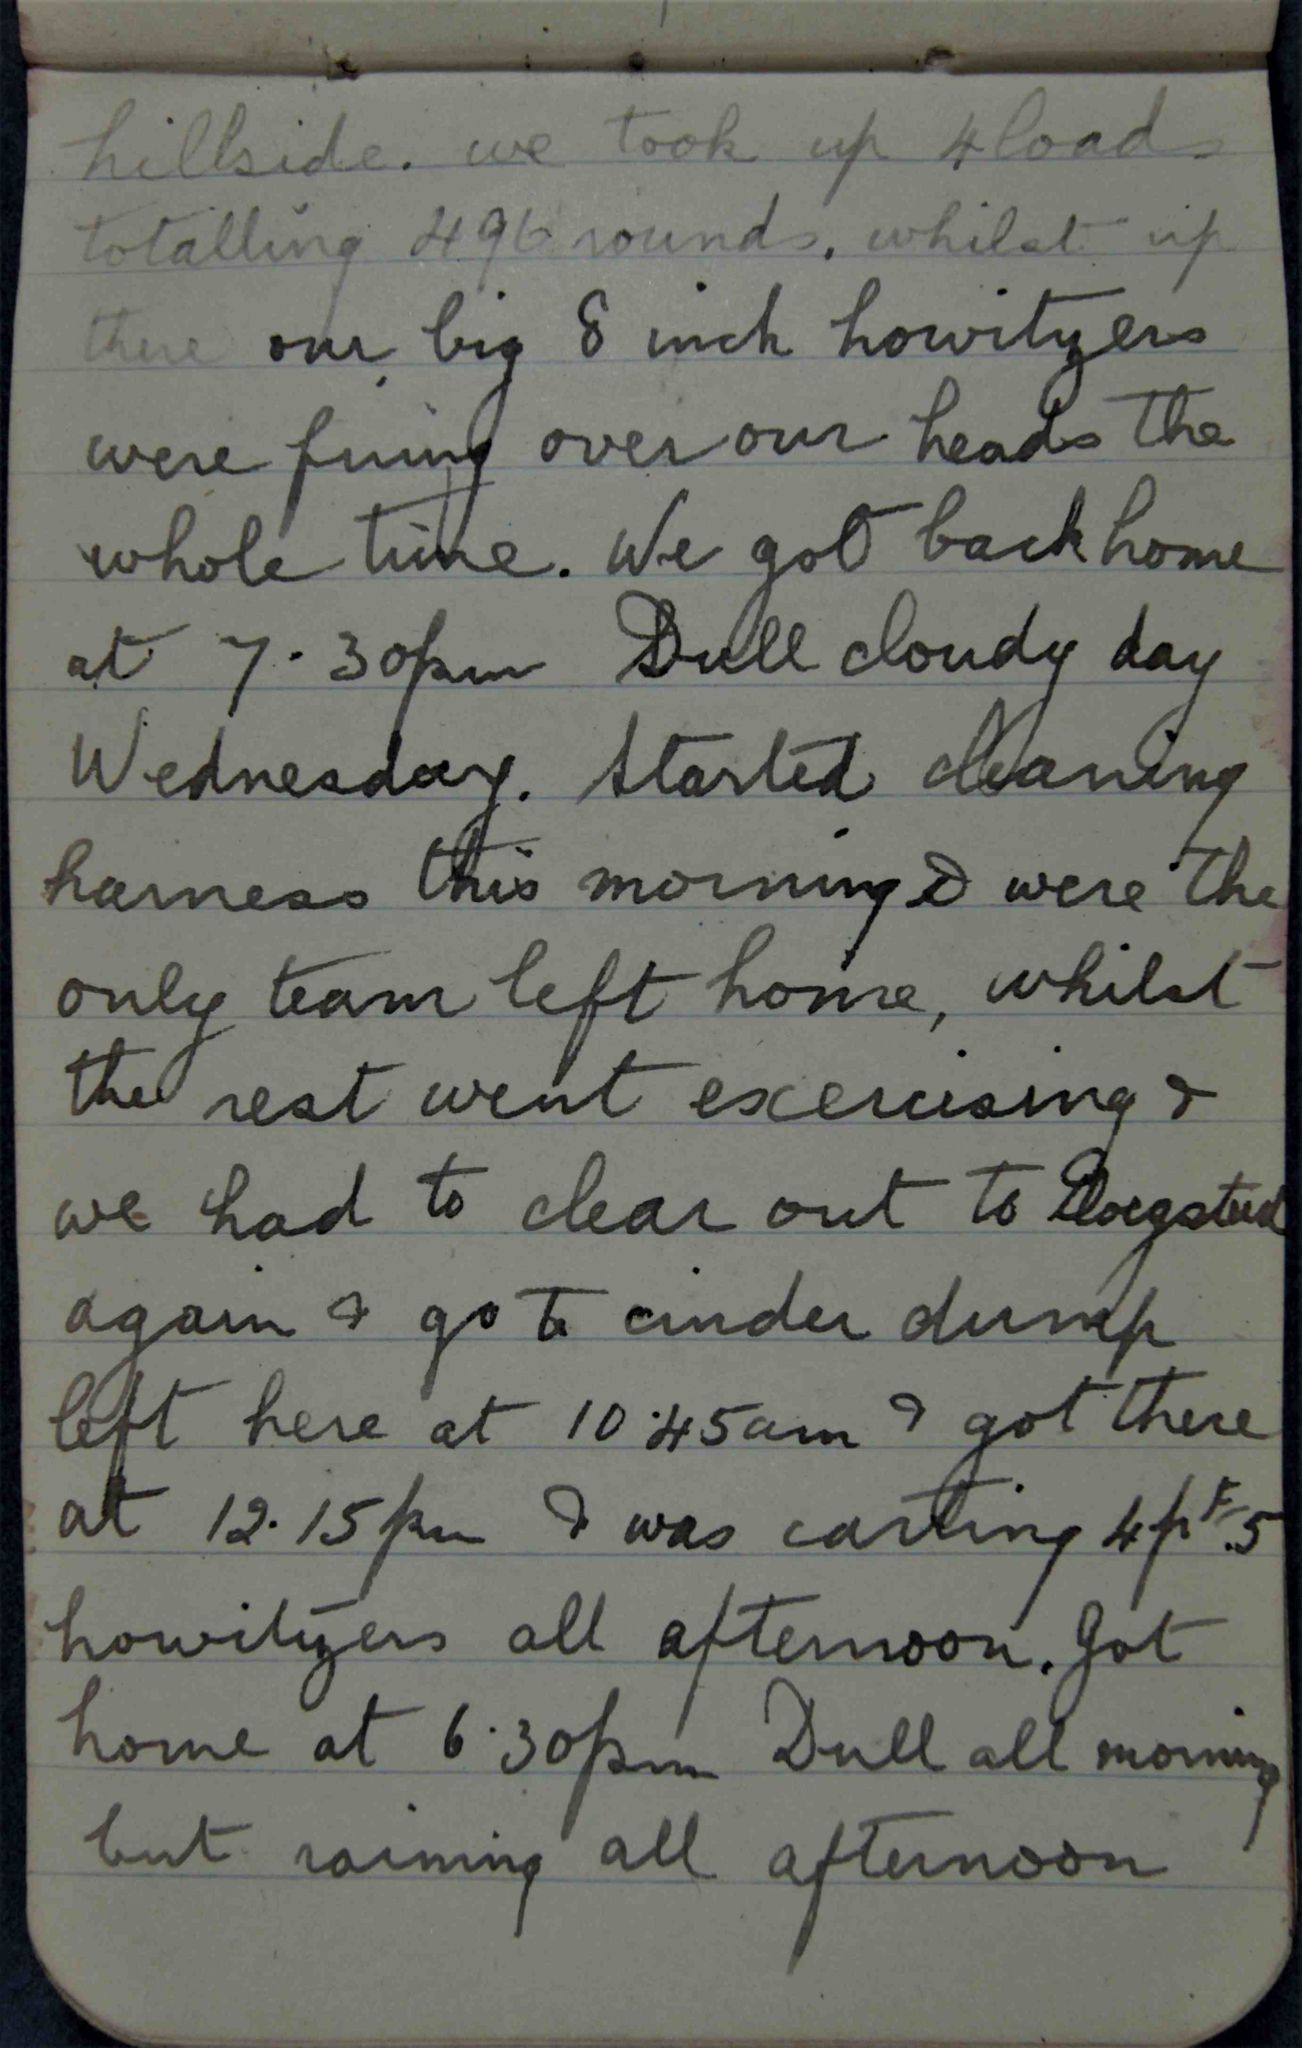 hillside. we took up 4 loads
totalling 496 rounds. whilst up
there our big 8 inch howityers
were firing over our heads the
whole time. We got back home
at 7.30pm Dull cloudy day
Wednesday. Started cleaning
harness this morning & were the
only team left home, whilst
the rest went exercising &
we had to clear out to
again & go to cinder dump
left here at 10.45am & got there
at 12.15pm & was carting 4 pt .5
howityers all afternoon. Got
home at 6.30pm Dull all morning
but raining all afternoon